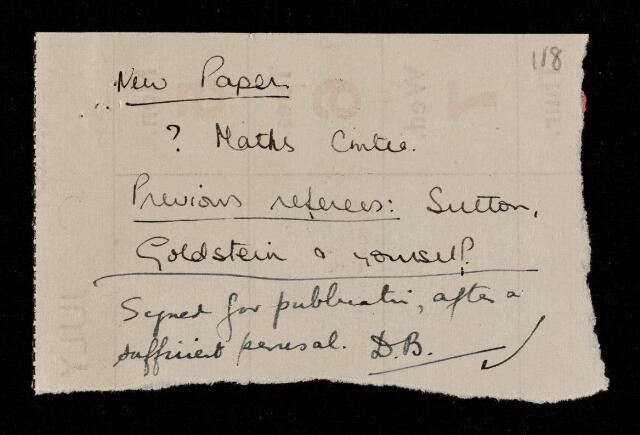 118
New Paper
? Maths Cmtee.
Previous referees: Sutton,
Goldstein & yourself.
Signed for publication, after a
sufficient perusal. D.B.
JULY
Wed.
Thur.